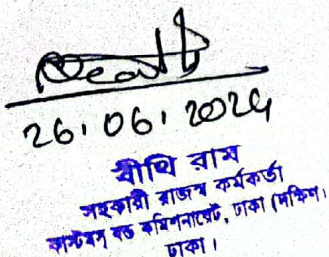 26.06.2024
বীথি রায়
সহকারী রাজস্ব কর্মকর্তা
কাস্টমস বন্ড কমিশনারেট, ঢাকা (দক্ষিণ)
ঢাকা।